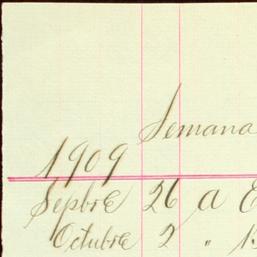 Semana
1909
Sepbre 26 a E
Octubre 2 "